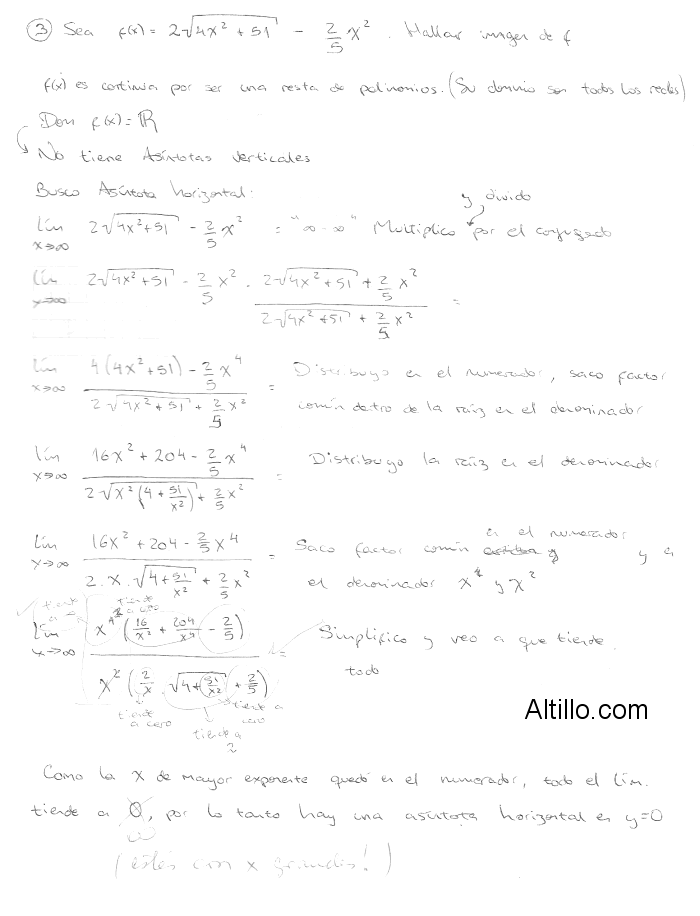 ③ Sea f(x) = 2√(4x² + 51) - 2/5 x². Hallar imagen de f
f(x) es continua por ser una resta de polinomios. (Su dominio son todos los reales)
Dom f(x) = ℝ
↳ No tiene Asíntotas verticales
Busco Asíntota horizontal:
y divido
lím x→∞ 2√(4x²+51) - 2/5 x² = "∞-∞" Multiplico por el conjugado
lím x→∞ 2√(4x²+51) - 2/5 x² . (2√(4x²+51) + 2/5 x²) / (2√(4x²+51) + 2/5 x²) =
lím x→∞ (4(4x²+51) - 2/5 x⁴) / (2√(4x²+51) + 2/5 x²) = Distribuyo en el numerador, saco factor
común dentro de la raíz en el denominador
lím x→∞ (16x² + 204 - 2/5 x⁴) / (2√(x²(4 + 51/x²)) + 2/5 x²) = Distribuyo la raíz en el denominador
en el numerador
lím x→∞ (16x² + 204 - 2/5 x⁴) / (2 . x . √(4 + 51/x²) + 2/5 x²) = Saco factor común y en
el denominador x⁴ y x²
tiende a cero
tiende a cero
lím x→∞ x⁴ (16/x² + 204/x⁴ - 2/5) / x² (2/x . √(4 + 51/x²) + 2/5) = Simplifico y veo a que tiende
todo
tiende a cero
tiende a cero
tiende a 2
Altillo.com
Como la x de mayor exponente quedó en el numerador, todo el lím.
tiende a 0, por lo tanto hay una asíntota horizontal en y=0
∞
(estés con x grandes!)